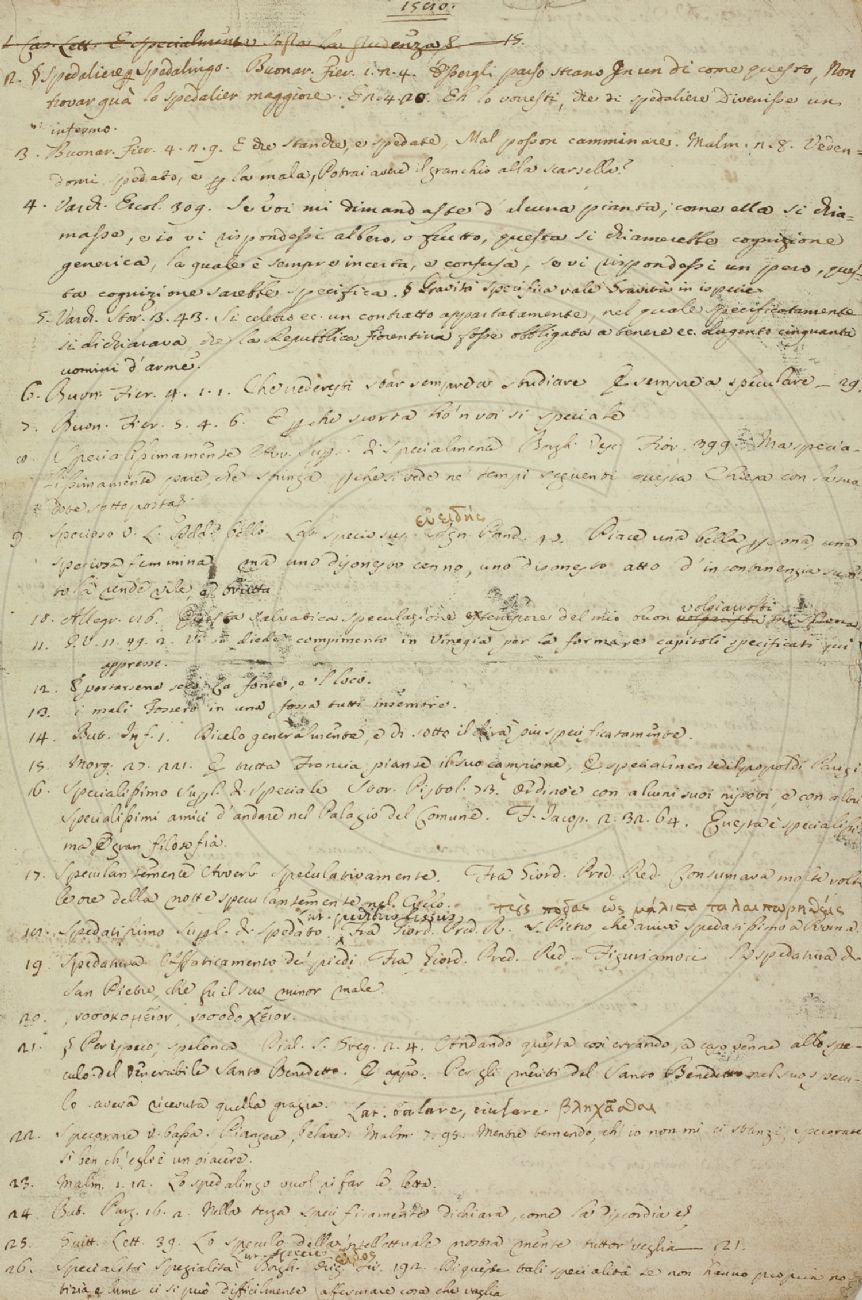 1510.
1. Cas. Lett. E specialmente sasta la prudenza § 15.
2. § Spedaliere p Spedalingo. Buonar. Fier. 1. 2. 4. passo strano In un dì come questo, Non
trovar quà lo spedalier maggiore. E 2. 4. 20. Eh lo vorresti, che di spedaliere Divenisse un
infermo.
3. Buonar. Fier. 4. 2. 9. E che stanche, e spedate, Mal posson camminare. Malm. 2. 8. Veden=
domi spedato, e p la mala, Potrai avere il granchio alla scarsella?
4. Varch. Ercol. 309. Se voi mi dimandaste d'alcuna pianta, come ella si chia-
masse, e io vi rispondessi albero, o frutto, questa si chiamerebbe cognizione
generica, la quale è sempre incerta, e confusa, se vi rispondessi un pero, ques-
ta cognizione sarebbe specifica. § Gravità specifica vale Gravità in ispecie
5. Varch. Stor. 13. 43. Si celebrò ec. un contratto appartatamente, nel quale specificatamente
si dichiarava che la Repubblica fiorentina fosse obbligata a tenere ec. dugento cinquanta
uomini d'arme.
6. Buon. Fier. 4. 1. 1. Che vederesti star sempre a studiare E sempre a speculare — 29.
7. Buon. Fier. 5. 4. 6. E pche scorta ho'n voi si speciale
8. Specialissimamente Avv. Supl. di specialmente Borgh. Vesc. Fior. 399. Ma specia-
lissimamente pare, che stringa pche si vede ne' tempi seguenti questa Chiesa con la sua
dote sottoposta
εὐειδής
9. Specioso v. L. Add. bello. Lat. speciosus. Agn. Pand. 40. Piace una bella psona una
speciosa femmina ma uno disonesto cenno, uno disonesto atto d'incontinenzia subi-
to la rende vile, e brutta
volgiamosti
10. Allegr. 216. Questa salvatica speculazione extempore del mio buon
11. G. V. 11. 49. 2. Vi si diede compimento in Vinegia per la forma, e capitoli specificati qui
appresso.
12. § portarsene seco La fonte, e 'l loco.
13. i mali fossero in una fossa tutti insembre.
14. But. Inf. 1. Dicelo generalmente, e di sotto il dirà più specificatamente.
15. Morg. 27. 221. E tutta Francia pianse il suo campione, E specialmente il popol di Parigi
16. Specialissimo Supl. di speciale Stor. Pistol. 73. Ordinoe con alcuni suoi nipoti, e con altri
specialissimi amici d'andare nel Palagio del Comune. F. Jacop. 2. 32. 64. Questa è specialissi-
ma E gran filosofia.
17. Speculantemente Avverb. speculativamente. Fra Giord. Pred. Red. Consumava molte volte
le ore della notte speculantemente nel Cielo.
Lat. pedibus fessis τοὺς πόδας ὡς μάλιστα ταλαιπωρηθείς
18. Spedatissimo Supl. di spedato. Fra Giord. Pred. R. S. Pietro che arrivò spedatissimo a Roma.
19. Spedatura Affaticamento de' piedi Fra Giord. Pred. Red. Figuriamoci la spedatura di
San Pietro, che fu il suo minor male
20. , νοσοκομεῖον, νοσοδοχεῖον.
21. § Per ispeco, spelonca Dial. S. Greg. 2. 4. Andando questa così errando, a caso venne allo spe-
culo del Venerabile Santo Benedetto. E appr. Per gli meriti del Santo Benedetto nel suo specu-
lo aveva ricevuta quella grazia.
Lat. balare, eiulare βληχᾶσθαι
22. Specorare v. bassa. Piangere, belare. Malm. 7. 95. Mentre temendo, ch'io non mi ci stanzi, specorate
si ben, ch'egli è un piacere.
23. Malm. 1. 12. Lo spedalingo vuol rifar le letta.
24. But. Purg. 16. 2. Nella terza specificamente dichiara, come la discordia è
25. Guitt. Lett. 39. Lo speculo della intellettuale nostra mente tuttor veglia — 121.
Lat. species εἶδος
26. Specialità Spezialità Borgh. Orig. Fir. 192. Di queste tali specialità se non hanno propria no-
tizia e lume ci si può difficilmente affermare cosa che vaglia